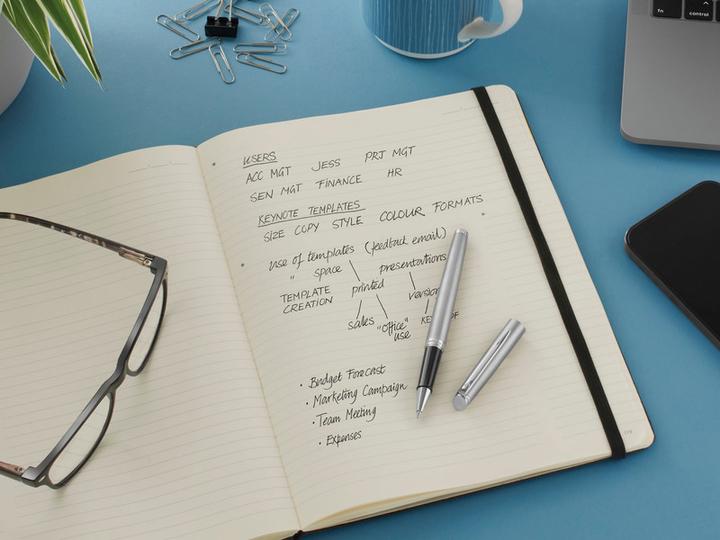 USERS
ACC MGT JESS PRJ MGT
SEN MGT FINANCE HR
KEYNOTE TEMPLATES
SIZE COPY STYLE COLOUR FORMATS
use of templates (feedback email)
" space presentations
TEMPLATE CREATION printed version
sales "office" use
• Budget Forecast
• Marketing Campaign
• Team Meeting
• Expenses
fn control